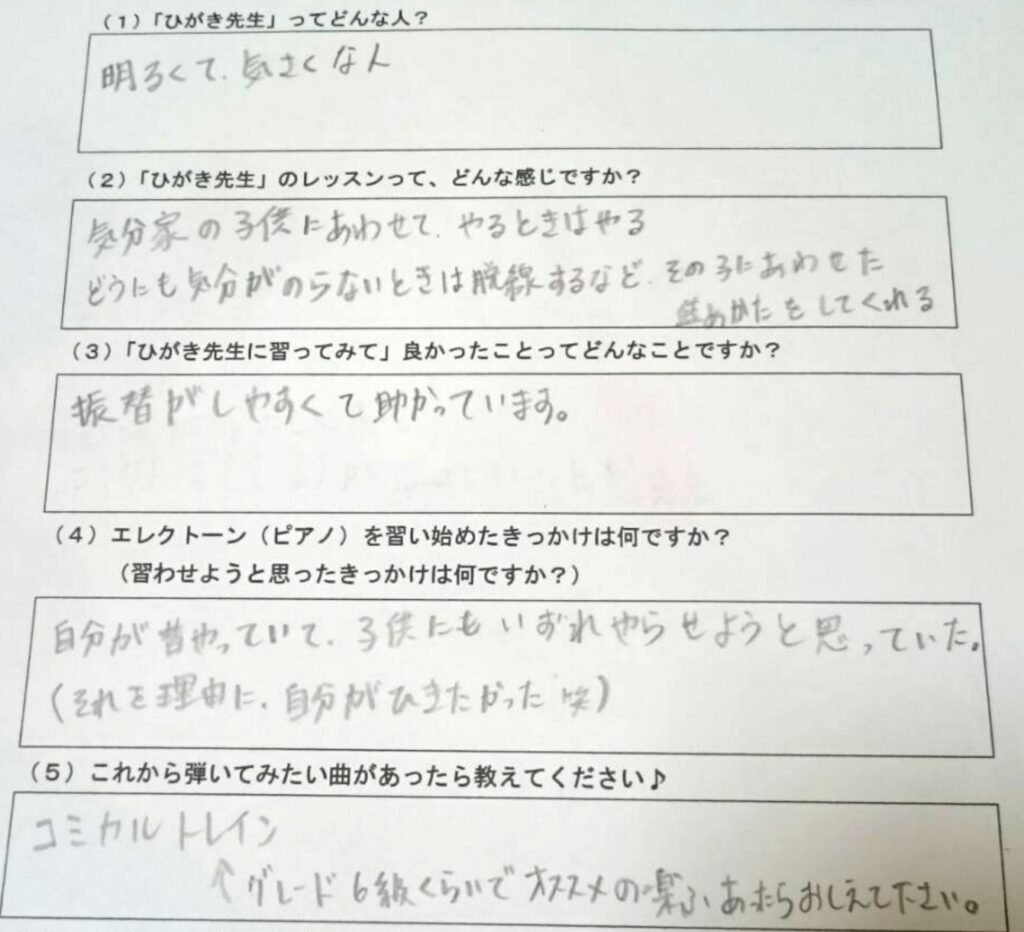 (1)「ひがき先生」ってどんな人？
明るくて、気さくな人
(2)「ひがき先生」のレッスンって、どんな感じですか？
気分家の子供にあわせて、やるときはやる
どうにも気分がのらないときは脱線するなど、その子にあわせた
進めかたをしてくれる
(3)「ひがき先生に習ってみて」良かったことってどんなことですか？
振替がしやすくて助かっています。
(4)エレクトーン（ピアノ）を習い始めたきっかけは何ですか？
（習わせようと思ったきっかけは何ですか？）
自分が昔やっていて、子供にもいずれやらせようと思っていた。
（それを理由に、自分がひきたかった 笑）
(5)これから弾いてみたい曲があったら教えてください♪
コミカルトレイン
↑グレード6級くらいでオススメの楽ふあったらおしえて下さい。